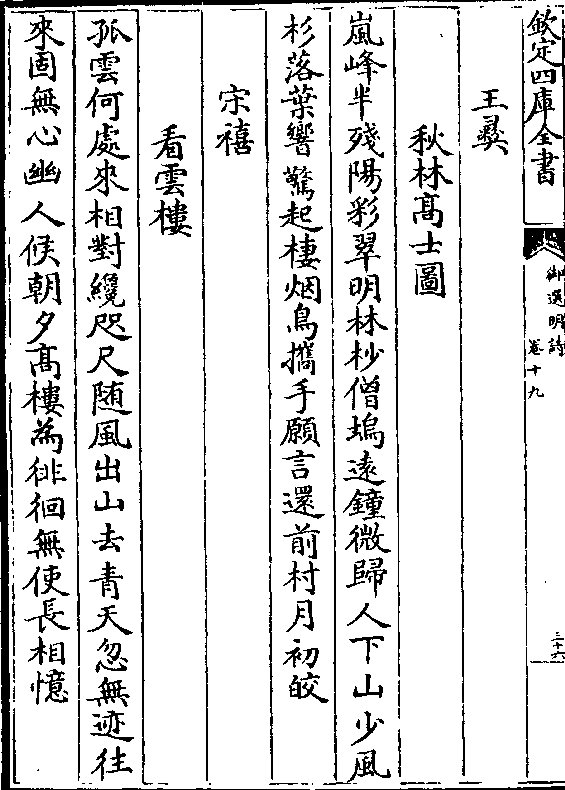 欽定四庫全書
御選明詩
卷十九
三十六
王彛
秋林髙士圖
嵐峰半殘陽彩翠明林杪僧塢遠鐘微歸人下山少風
杉落葉響驚起棲烟鳥攜手願言還前村月初皎
宋禧
看雲樓
孤雲何處來相對纔咫尺随風出山去青天忽無迹往
來固無心幽人候朝夕髙樓為徘徊無使長相憶